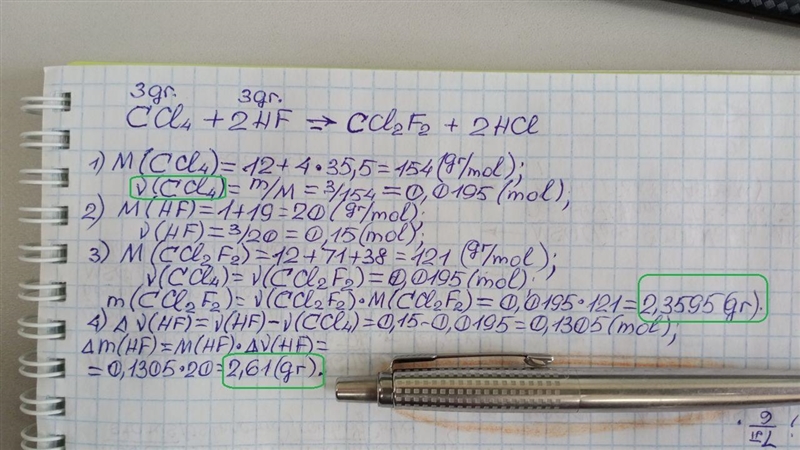 3gr. 3gr.
CCl₄ + 2HF ⇒ CCl₂F₂ + 2HCl
1) M(CCl₄) = 12 + 4·35,5 = 154 (gr/mol);
ν(CCl₄) = m/M = 3/154 = 0,0195 (mol);
2) M(HF) = 1+19 = 20 (gr/mol);
ν(HF) = 3/20 = 0,15 (mol);
3) M(CCl₂F₂) = 12+71+38 = 121 (gr/mol);
ν(CCl₄) = ν(CCl₂F₂) = 0,0195 (mol);
m(CCl₂F₂) = ν(CCl₂F₂)·M(CCl₂F₂) = 0,0195·121 = 2,3595 (gr).
4) Δν(HF) = ν(HF) - ν(CCl₄) = 0,15 - 0,0195 = 0,1305 (mol);
Δm(HF) = M(HF)·Δν(HF) =
= 0,1305·20 = 2,61 (gr).